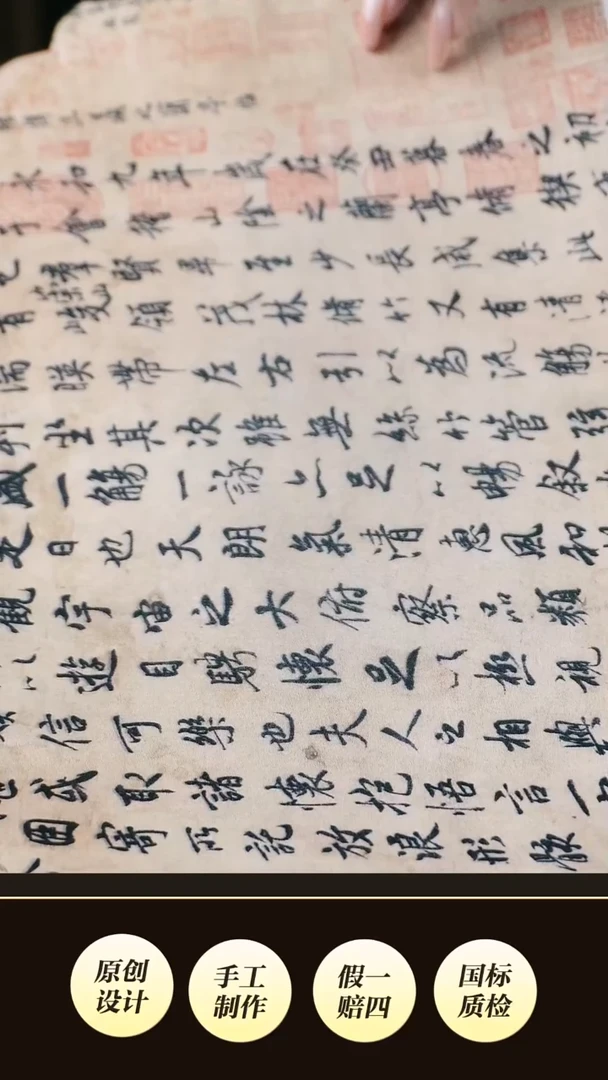 永和九年歲在癸丑暮春之初
于會稽山陰之蘭亭脩稧
也羣賢畢至少長咸集此
有崇山峻領茂林脩竹又有清
湍暎帶左右引以為流觴
列坐其次雖無絲竹管弦
盛一觴一詠亦足以暢敘
是日也天朗氣清惠風和
觀宇宙之大俯察品類
以遊目騁懷足以極視
信可樂也夫人之相與
或取諸懷抱悟言一
因寄所託放浪形骸
原创
设计
手工
制作
假一
赔四
国标
质检